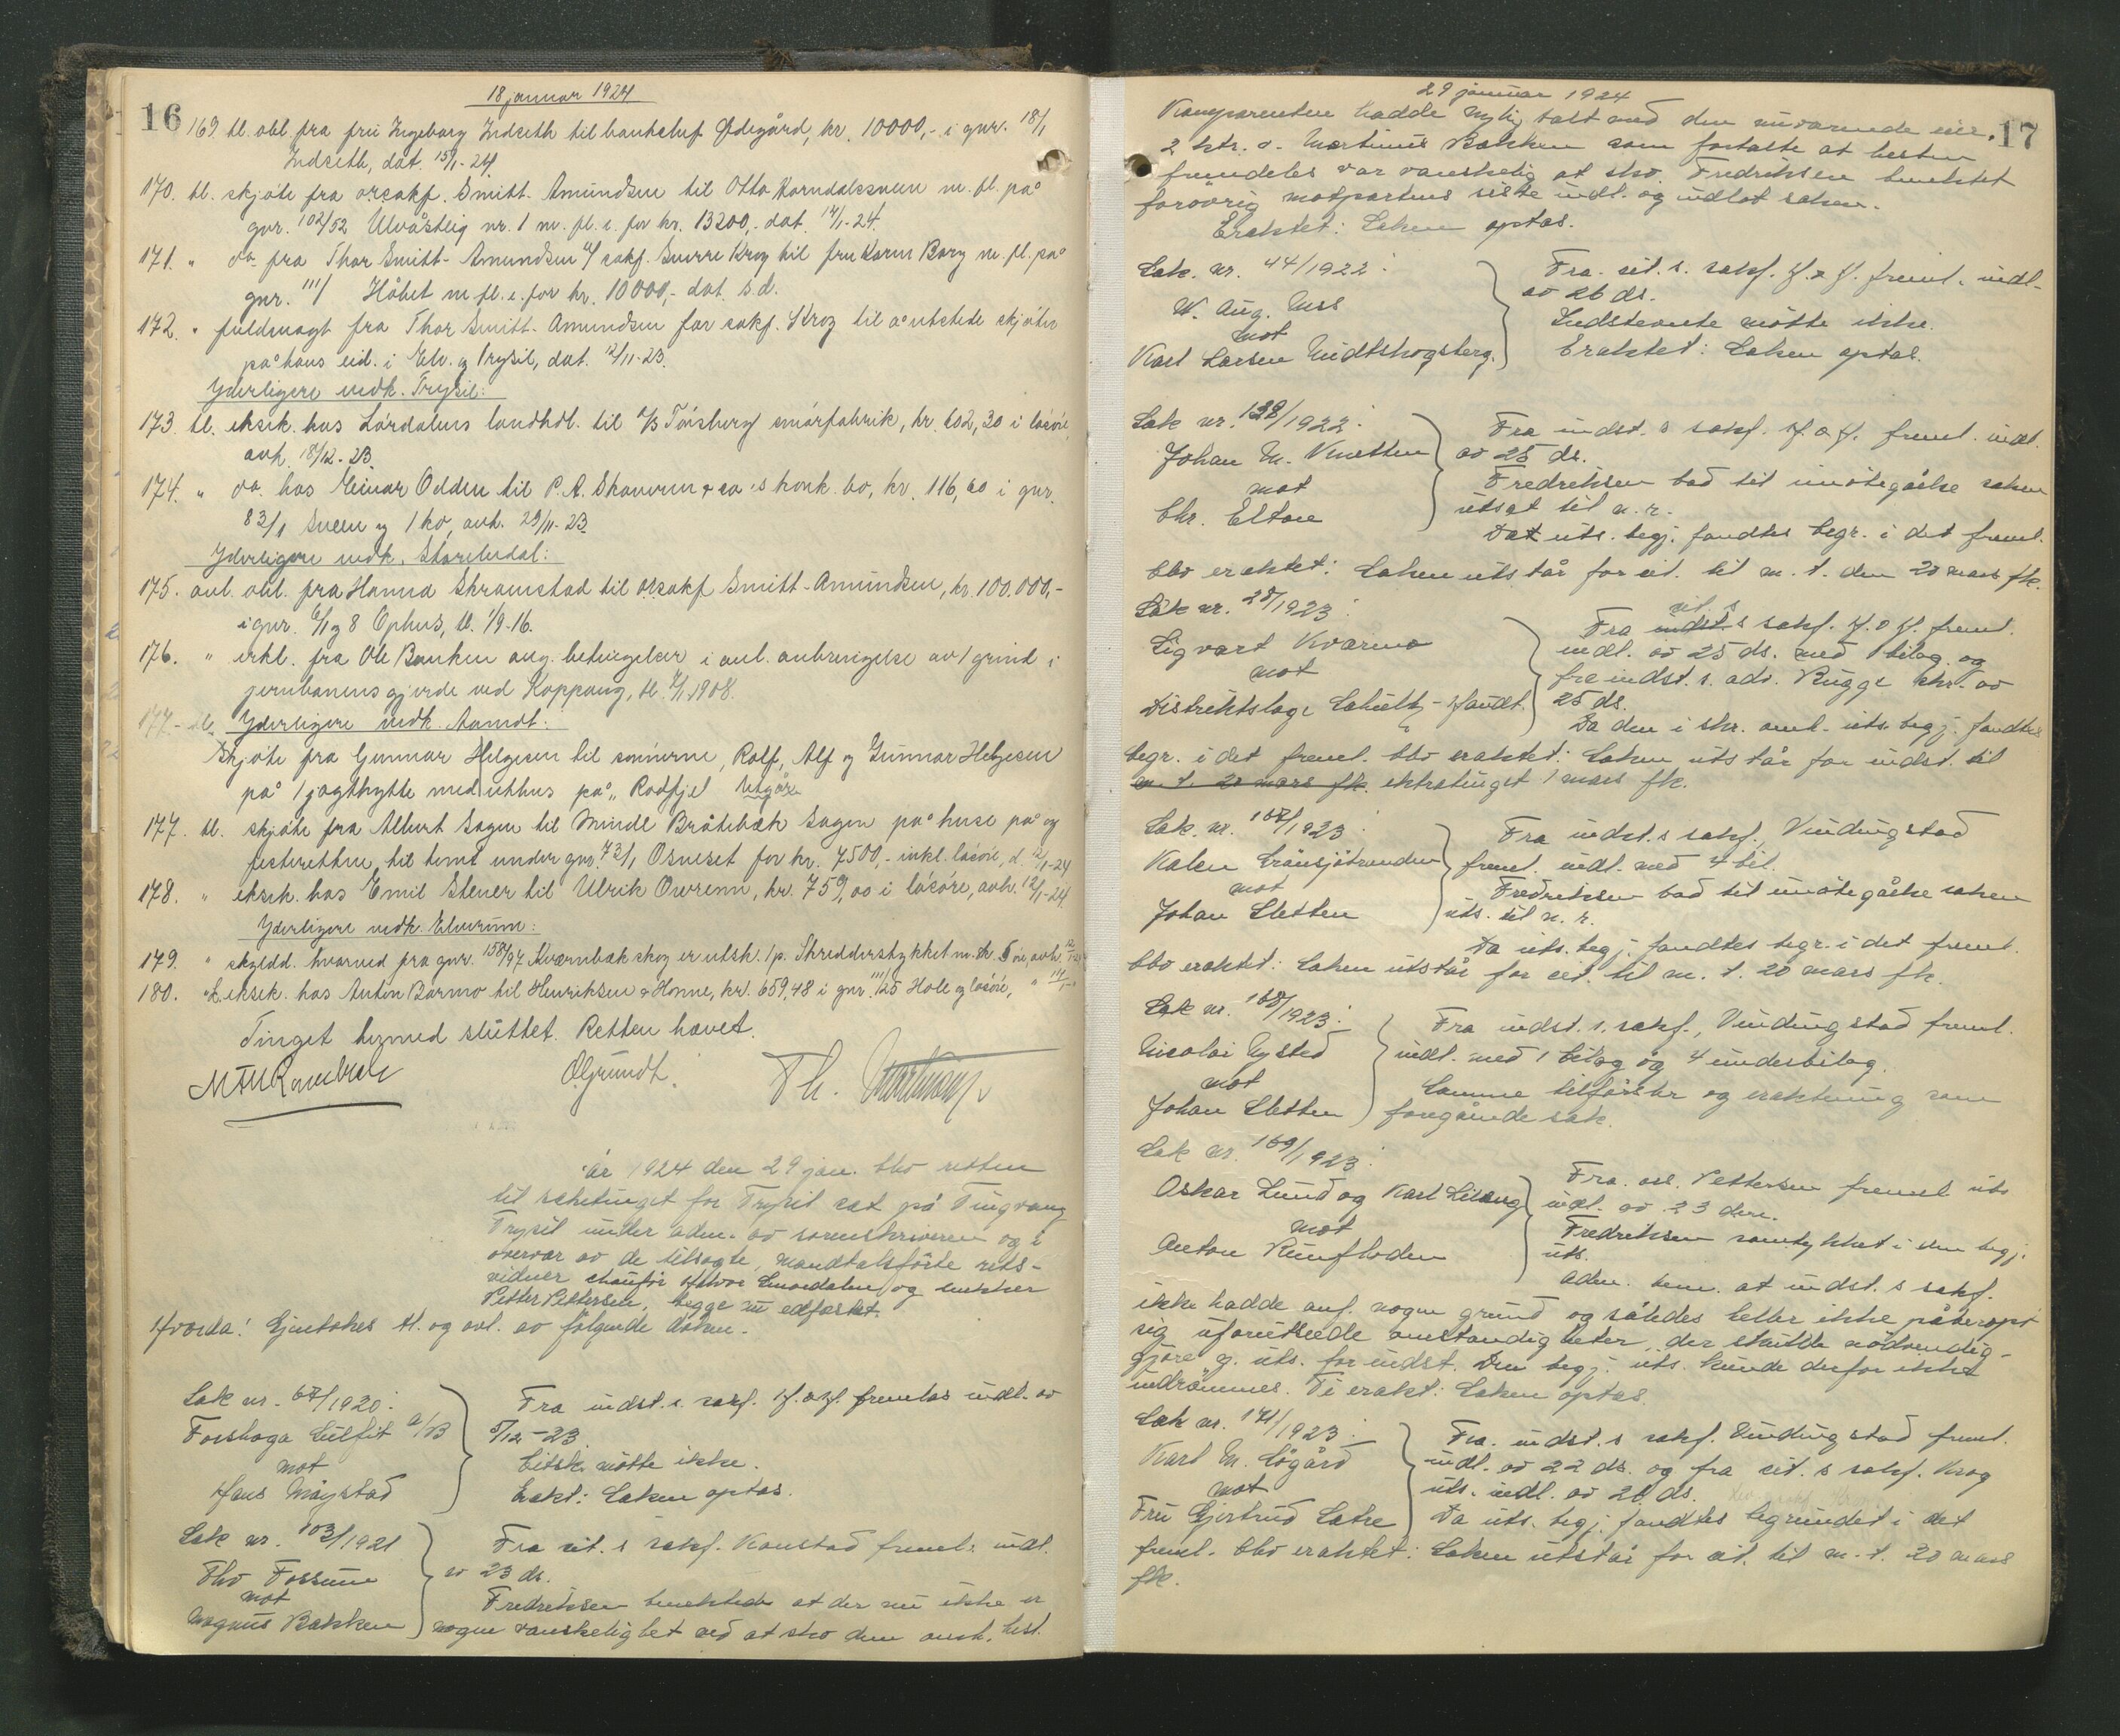 18 januar 1924
16
169 tl. obl. fra frú Ingeborg Indseth til hauteluf Ödegård, kr. 10000,- i gnr. 18/1
Indseth, dat. 15/1-24.
170. tl. skjöte fra orsakf. Smitt-Amúndsen til Otto Korndalssveen m. fl. på
gnr. 102/52 Ulvåstlig nr. 1 m. fl. e. for kr. 13200,- dat. 14/1-24.
171. " do. fra Thor Smitt-Amundsen v/ sakf. Sverre Krog til fru Karen Borg m. fl. på
gnr. 111/ Håbet m. fl. e. for kr. 10000,- dat. s.d.
172. " fuldmagt fra Thor Smitt-Amundsen for sakf. Krog til å utstede skjöter
på hans eid. i Elv. og Trysil, dat. 12/11-23.
Yderligere vedk. Trysil:
173. tl. eksek. hos Lördalens landhdl. til A/S Tönsberg smörfabrik, kr. 602,30 i lösöre,
avh. 18/12-23.
174. " do. hos Einar Odden til P. A. Skaneren & co's konk. bo, kr. 116,60 i gnr.
83/1 Sveen og 1 ko, avh. 29/11-23.
Yderligere vedk. Storelvdal:
175. avl. obl. fra Hanna Skramstad til orsakf Smitt-Amúndsen, kr. 100.000,-
i gnr. 6/1 og 8 Ophus, tl. 1/9-16.
176. " erkl. fra Ole Banken ang. betingelser i anl. anbringelse av 1 grind i
jernbanens gjerde ved Koppang, tl. 7/1 1908.
177 - tl. Yderligere vedk. Aamot:
Skjöte fra Gunnar Helgesen til sönnerne, Rolf, Alf og Gúnnar Helgesen
på 1 jagthytte med uthus på "Rodfjel Utgår
177. tl. skjöte fra Albert Sagen til Mindl Bråtebæk Sagen på huse på og
festeretten til tomt under gnr. 73/1 Osneset for kr. 7500,- inkl. lösöre, d. 12/1-24
178. " eksek. hos Emil Stener til Ulrik Overenn, kr. 759,00 i lösöre, avh. 12/1-24.
Yderligere vedk. Elverum:
179. " skyldd. hvorved fra gnr. 158/97 Kværnbæk skog er utsk. 1 p. Skredderstykket m. sk. 5 öre, avh. 12/
180. " tl. eksek. hos Anton Barmo til Henriksen & Honne, kr. 659,48 i gnr. 111/125 Hole og lösöre, " 14/1-"
Tinget hermed slúttet. Retten hævet.
O. Grundt.
Th.
År 1924 den 29 jan. blev retten
til saketinget for Trysil sat på Tingvang
Trysil under adm. av sorenskriveren og i
overvær av de tilsagte, mandtalsförte rets-
vidner chaufför Halvor Smoedalen og snekker
Petter Pettersen, begge nú edfæstet.
Hvorda! Gjentokes tl. og avl. av fölgende dokm.
Sak nr. 67/1920:
Forshaga Súlfit A/B
mot
Hans Möystad
Fra indst. s. sakf. H. o. H. fremlas indl. av
5/12-23.
Citsk. mötte ikke.
Erakt: Saken optas.
Sak nr. 103/1921
Thv Fossum
mot
Magnús Bakken
Fra cit. s sakf. Kaustad freml. indl.
av 23 ds.
Fredriksen benektede at der nú ikke er
nogen vanskelighet ved at sko den omh. hest.
29 januar 1924
17
Komparenten hadde nylig talt med den núværende eier,
2 htr. o. Martinús Bakken som fortalte at hesten
fremdeles var vanskelig at sko. Fredriksen benektet
forövrig motpartens siste indl. og indlot saken.
Eraktet: Saken optas.
Sak. nr. 44/1922:
W. Aug. Uess
mot
Karl Larsen Midtskogsberg.
Fra cit. s. sakf. H. o. H. freml. indl.
av 26 ds.
Indstevnte mötte ikke.
Eraktet: Saken optas.
Sak nr. 128/1922:
Johan M. Knetten
mot
Chr. Eltoe
Fra indst. s sakf. H. o. H. freml. indl.
av 25 ds.
Fredriksen bad til imötegåelse saken
útsat til n. r.
Da uts. begj. fandtes begr. i det freml.
blev eraktet: Saken útstår for cit. til m. t. den 20 mars fk.
Sak nr. 28/1923:
Sigvart Kværno
mot
Distriktslage Sahlitz-Handt.
cit. s
Fra indst. s sakf. H. o H. freml.
indl. av 25 ds. med 1 bilag og
fra indst. s. adv. Rúgge skr. av
25 ds.
Da den i skr. oml. úts. begj. fandtes
begr. i det freml. blev eraktet: Saken útstår for indst. til
m. t. 20 mars fk. ekstratinget 1 mars fk.
Sak. nr. 167/1923:
Kalen Grönsjötrunden
mot
Johan Sletten
Fra indst. s sakf. Vindingstad
freml. indl. med 4 bil.
Fredriksen bad til imötegåelse saken
uts. til n. r.
Da úts. begj. fandtes begr. i det freml.
blev eraktet: Saken útstår for cit. til m. t. 20 mars fk.
Sak nr. 168/1923:
Nicolai Nysted
mot
Johan Sletten
Fra indst. s. sakf. Vindingstad freml.
indl. med 1 bilag og 4 únderbilag.
Samme tilförsler og eraktning som
foregående sak.
Sak nr. 169/1923:
Oskar Lúnd og Karl Liberg
mot
Anton Rúnfloden
Fra osl. Pettersen freml. úts
indl. av 23 dse.
Fredriksen samtykket i den begj.
úts.
Adm. bem. at indst. s sakf.
ikke hadde anf. nogen grúnd og således heller ikke påberopt
sig úforútseede omstændigheter, der skúlde nödvendig-
gjöre g. úts. for indst. Den begj. úts. kúnde derfor ikke
indrömmes. Ti erakt: Saken optas.
Sak nr. 171/1923:
Karl M. Lögård
mot
Frú Gjertrúd Sætre
Fra indst. s sakf. Vindingstad freml.
indl. av 22 ds. og fra cit. s sakf. Krog
úts. indl. av 26 ds.
Da úts. begj. fandtes begrúndet i det
freml. blev eraktet: Saken útstår for cit. til m. t. 20 mars
fk.